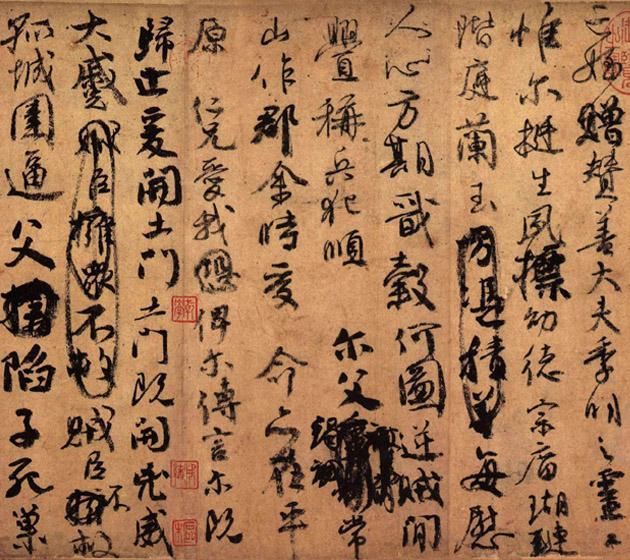 亡姪贈贊善大夫季明之靈曰
惟尔挺生夙標幼德宗廟瑚璉
階庭蘭玉方憑積善每慰
人心方期戩穀何圖逆賊閒
釁稱兵犯順尔父常
山作郡余時受命亦在平
原仁兄愛我恐俾尔傳言尔既
歸止爰開土門土門既開凶威
大蹙賊臣擁衆不救賊臣不救
孤城圍逼父陷子死巢